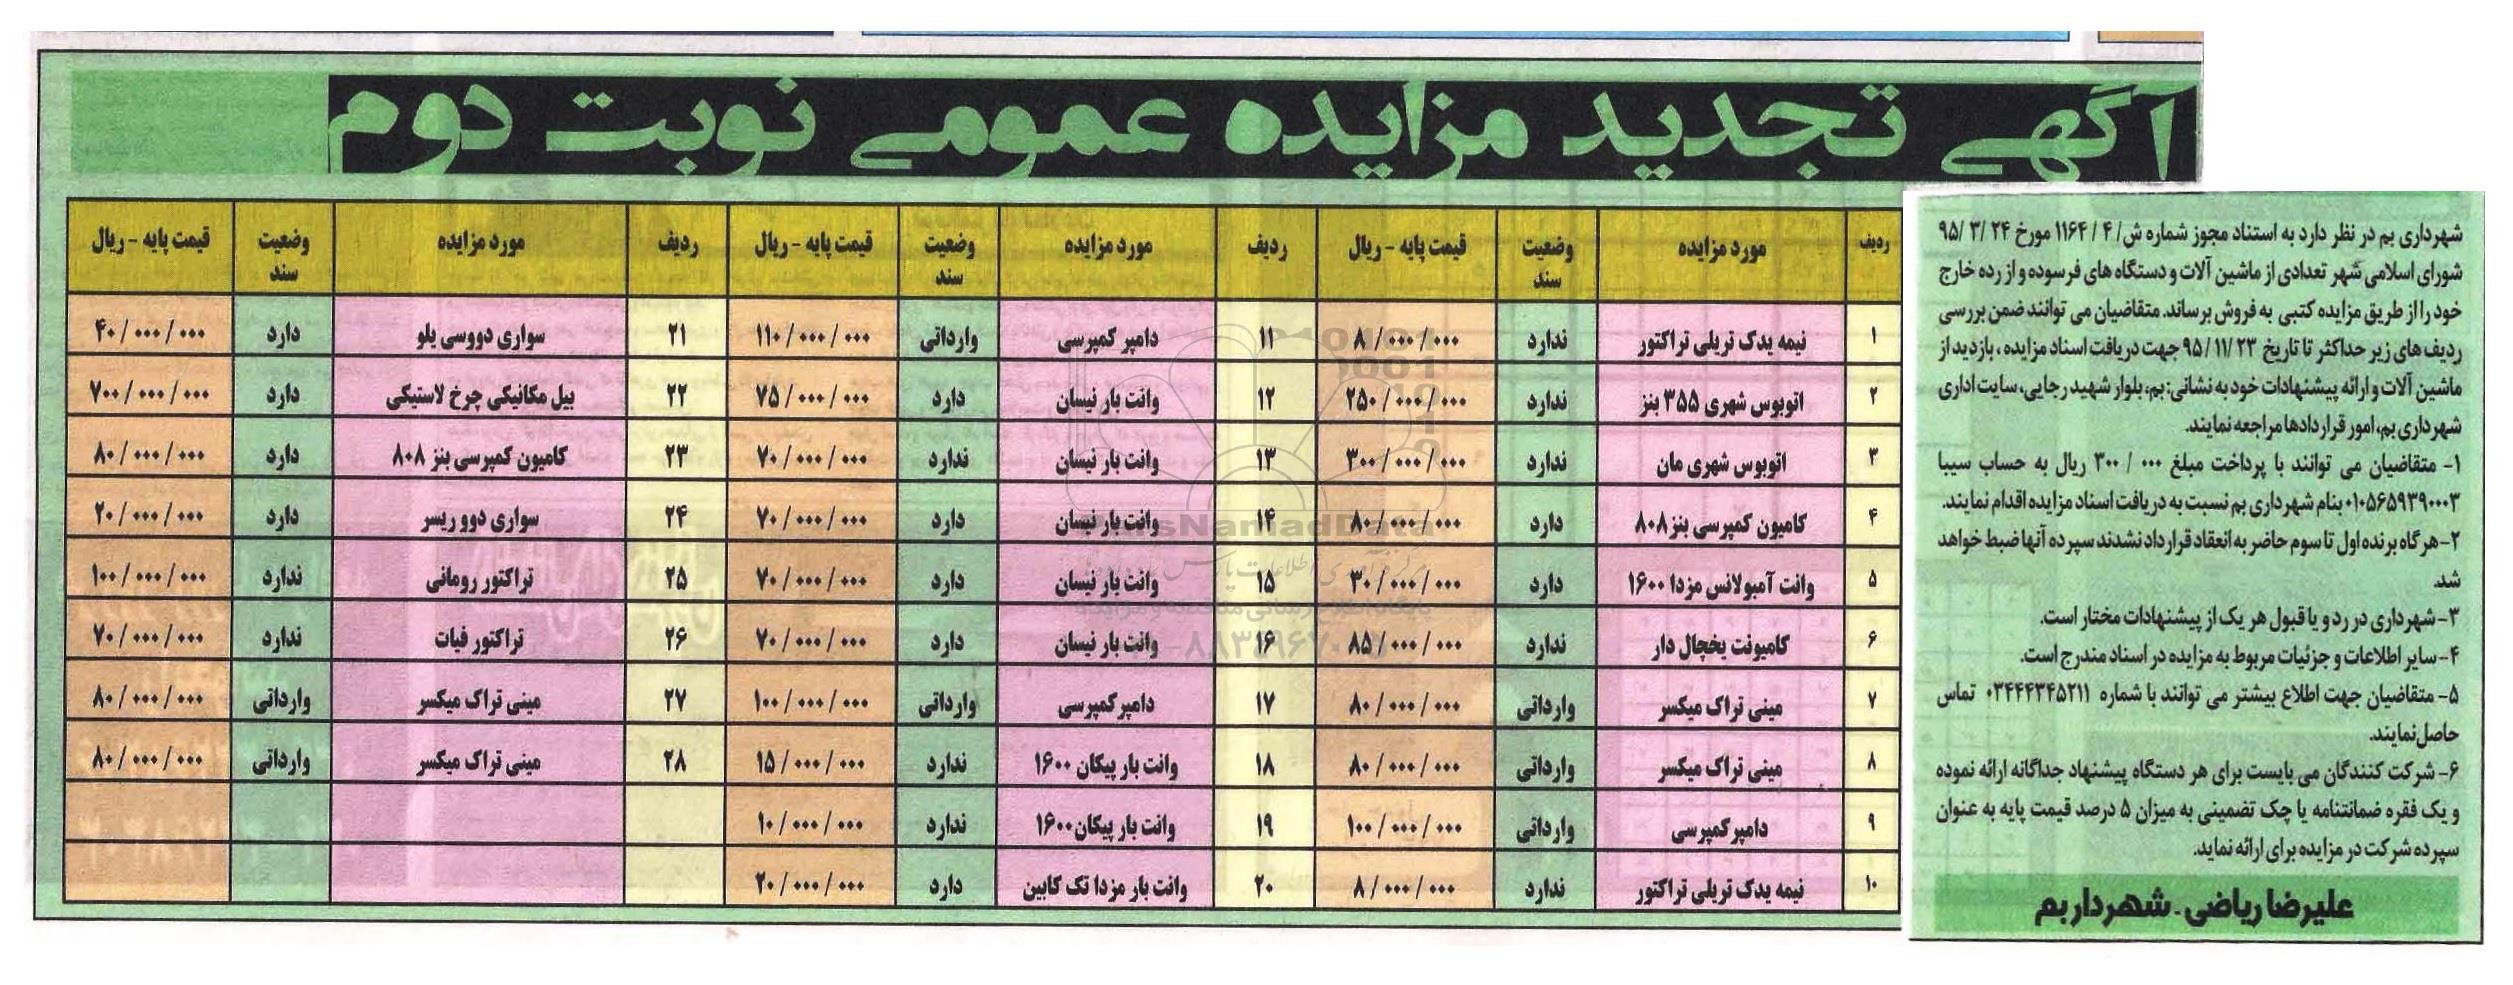 آگهی تجدید مزایده عمومی نوبت دوم
شهرداری بم در نظر دارد به استناد مجوز شماره ش/ ۴ / ۱۱۶۴ مورخ ۲۴ /۳ /۹۵
شورای اسلامی شهر تعدادی از ماشین آلات و دستگاه های فرسوده و از رده خارج
خود را از طریق مزایده کتبی به فروش برساند. متقاضیان می توانند ضمن بررسی
ردیف های زیر حداکثر تا تاریخ ۹۵/۱۱/۲۳ جهت دریافت اسناد مزایده ، بازدید از
ماشین آلات و ارائه پیشنهادات خود به نشانی: بم، بلوار شهید رجایی، سایت اداری
شهرداری بم، امور قراردادها مراجعه نمایند.
۱- متقاضیان می توانند با پرداخت مبلغ ۳۰۰/۰۰۰ ریال به حساب سیبا
۰۱۰۵۶۵۹۳۹۰۰۰۳ بنام شهرداری بم نسبت به دریافت اسناد مزایده اقدام نمایند.
۲-هرگاه برنده اول تا سوم حاضر به انعقاد قرارداد نشدند سپرده آنها ضبط خواهد
شد.
۳-شهرداری در رد و یا قبول هر یک از پیشنهادات مختار است.
۴-سایر اطلاعات و جزئیات مربوط به مزایده در اسناد مندرج است.
۵- متقاضیان جهت اطلاع بیشتر می توانند با شماره ۰۳۴۴۴۳۴۵۲۱۱ تماس
حاصل نمایند.
۶- شرکت کنندگان می بایست برای هر دستگاه پیشنهاد جداگانه ارائه نموده
و یک فقره ضمانتنامه یا چک تضمینی به میزان ۵ درصد قیمت پایه به عنوان
سپرده شرکت در مزایده برای ارائه نماید.
علیرضا ریاضی - شهردار بم
ردیف مورد مزایده وضعیت سند قیمت پایه - ریال
۱ نیمه یدک تریلی تراکتور ندارد ۸/۰۰۰/۰۰۰
۲ اتوبوس شهری ۳۵۵ بنز ندارد ۲۵۰/۰۰۰/۰۰۰
۳ اتوبوس شهری مان ندارد ۳۰۰/۰۰۰/۰۰۰
۴ کامیون کمپرسی بنز۸۰۸ دارد ۸۰/۰۰۰/۰۰۰
۵ وانت آمبولانس مزدا ۱۶۰۰ دارد ۳۰/۰۰۰/۰۰۰
۶ کامیونت یخچال دار ندارد ۸۵/۰۰۰/۰۰۰
۷ مینی تراک میکسر وارداتی ۸۰/۰۰۰/۰۰۰
۸ مینی تراک میکسر وارداتی ۸۰/۰۰۰/۰۰۰
۹ دامپر کمپرسی وارداتی ۱۰۰/۰۰۰/۰۰۰
۱۰ نیمه یدک تریلی تراکتور ندارد ۸/۰۰۰/۰۰۰
ردیف مورد مزایده وضعیت سند قیمت پایه - ریال
۱۱ دامپر کمپرسی وارداتی ۱۱۰/۰۰۰/۰۰۰
۱۲ وانت بار نیسان دارد ۷۵/۰۰۰/۰۰۰
۱۳ وانت بار نیسان ندارد ۷۰/۰۰۰/۰۰۰
۱۴ وانت بار نیسان دارد ۷۰/۰۰۰/۰۰۰
۱۵ وانت بار نیسان دارد ۷۰/۰۰۰/۰۰۰
۱۶ وانت بار نیسان دارد ۷۰/۰۰۰/۰۰۰
۱۷ دامپر کمپرسی وارداتی ۱۰۰/۰۰۰/۰۰۰
۱۸ وانت بار پیکان ۱۶۰۰ ندارد ۱۵/۰۰۰/۰۰۰
۱۹ وانت بار پیکان۱۶۰۰ ندارد ۱۰/۰۰۰/۰۰۰
۲۰ وانت بار مزدا تک کابین دارد ۲۰/۰۰۰/۰۰۰
ردیف مورد مزایده وضعیت سند قیمت پایه - ریال
۲۱ سواری دووسی یلو دارد ۴۰/۰۰۰/۰۰۰
۲۲ بیل مکانیکی چرخ لاستیکی دارد ۷۰۰/۰۰۰/۰۰۰
۲۳ کامیون کمپرسی بنز ۸۰۸ دارد ۸۰/۰۰۰/۰۰۰
۲۴ سواری دوو ریسر دارد ۲۰/۰۰۰/۰۰۰
۲۵ تراکتور رومانی ندارد ۱۰۰/۰۰۰/۰۰۰
۲۶ تراکتور فیات ندارد ۷۰/۰۰۰/۰۰۰
۲۷ مینی تراک میکسر وارداتی ۸۰/۰۰۰/۰۰۰
۲۸ مینی تراک میکسر وارداتی ۸۰/۰۰۰/۰۰۰
ParsNamadData